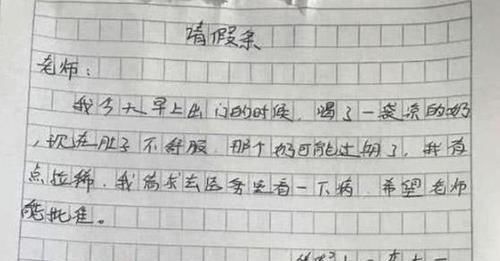 请假条
老师：
我今天早上出门的时候，喝了一袋凉的奶
，现在肚子不舒服，那个奶可能过期了，我有
点拉稀，我需求去医务室看一下病，希望老师
能批准。